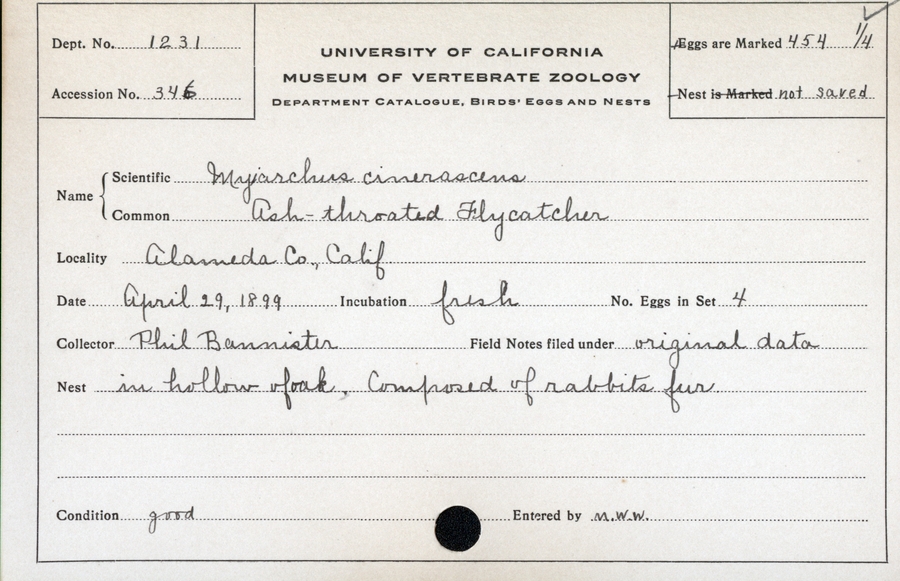 Dept. No. 1231
Accession No. 346
UNIVERSITY OF CALIFORNIA
MUSEUM OF VERTEBRATE ZOOLOGY
DEPARTMENT CATALOGUE, BIRDS' EGGS AND NESTS
Eggs are Marked 454 1/4
Nest is Marked not saved
Name
Scientific Myiarchus cinerascens
Common Ash-throated Flycatcher
Locality Alameda Co., Calif
Date April 29, 1899 Incubation fresh No. Eggs in Set 4
Collector Phil Bannister Field Notes filed under original data
Nest in hollow of oak. Composed of rabbits fur
Condition good Entered by M.W.W.